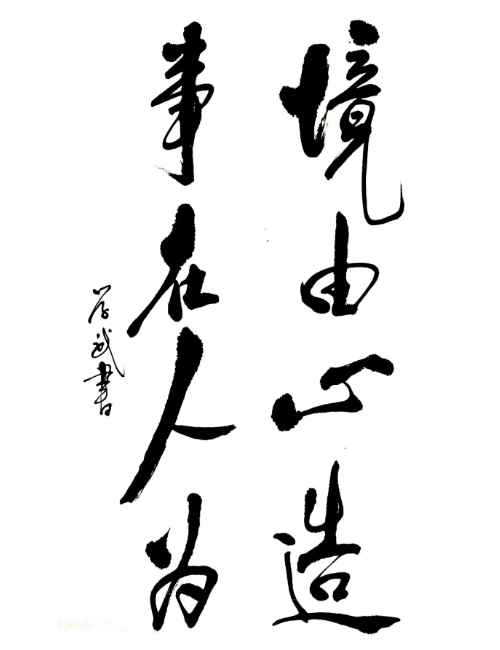 境由心造
事在人为
学武書